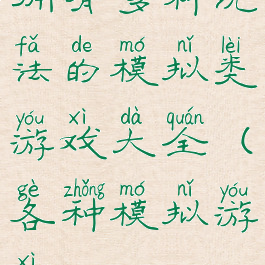 fǎ de mó nǐ lèi
法的模拟类
yóu xì dà quán
游戏大全（
gè zhǒng mó nǐ yóu
各种模拟游
xì